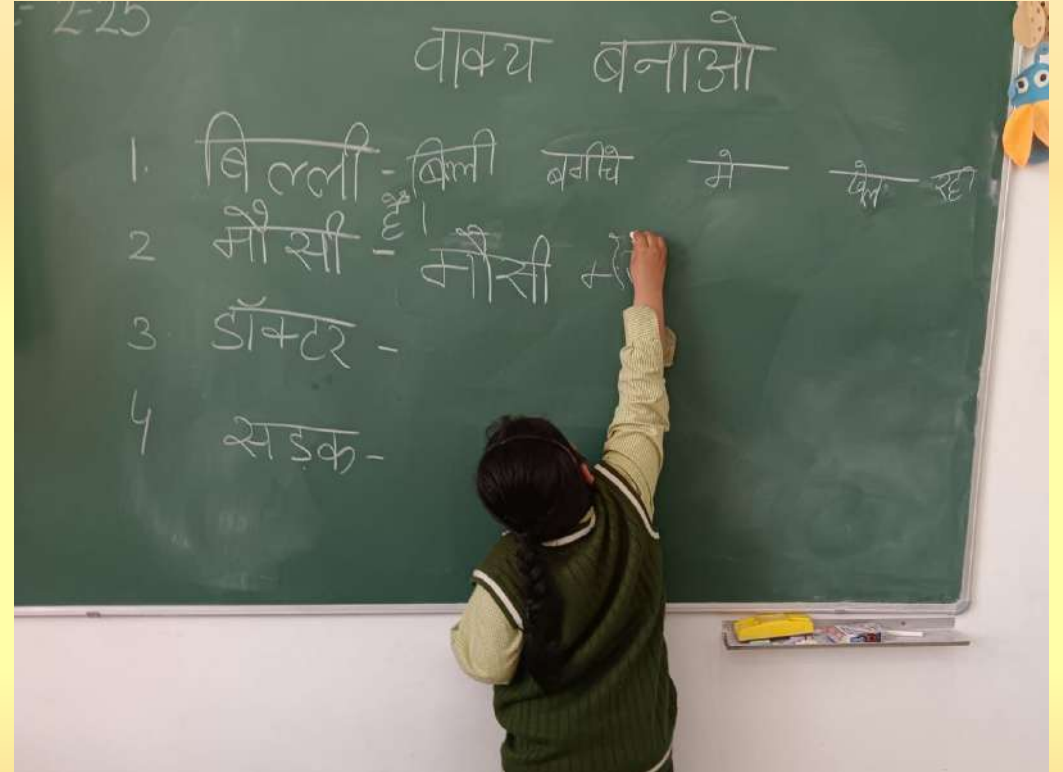 2-25
वाक्य बनाओ
1. बिल्ली - बिल्ली बगीचे मे खेल रहा
है।
2 मौसी - मौसी
3. डॉक्टर -
4 सड़क -